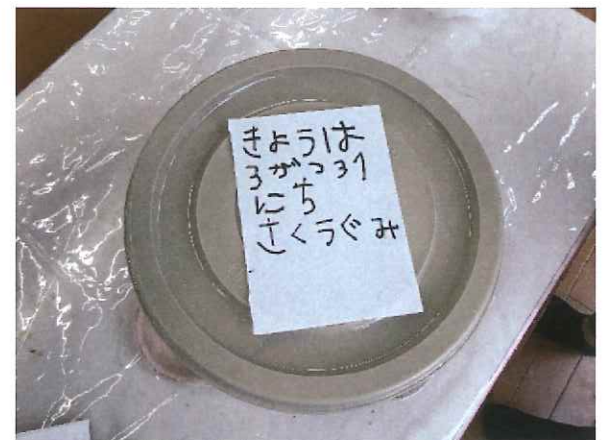 きょうは
3がつ31
にち
さくうぐみ